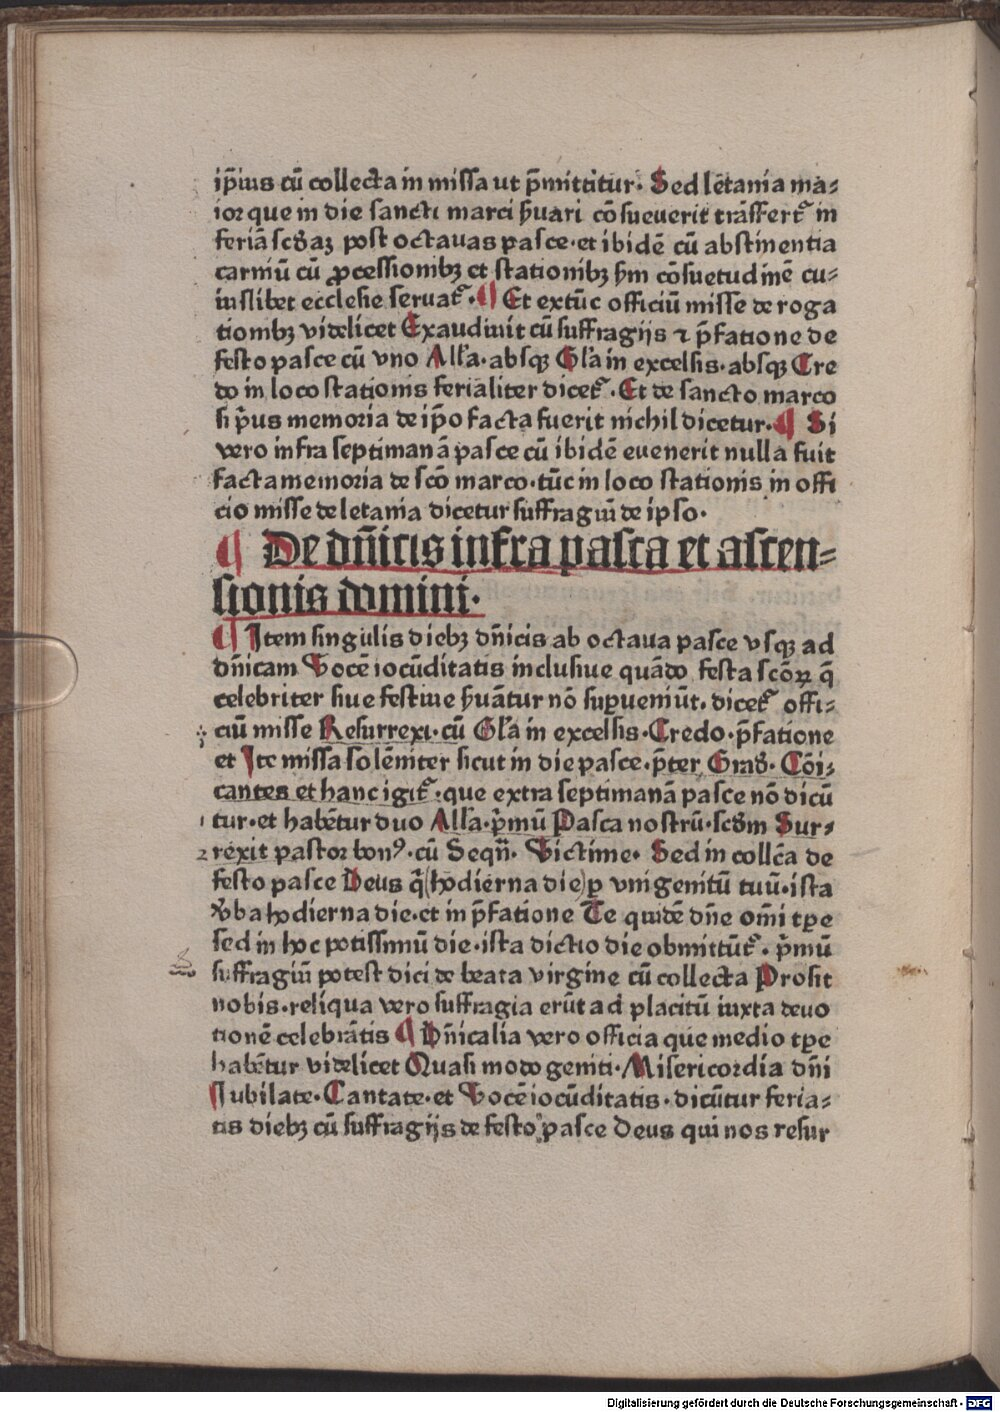 ip̄ius cū collecta in missa ut p̄mittitur. Sed letania ma⸗
ior que in die sancti marci ẜuari cōsueuerit trāsfert᷑ in
feriā scḋaꝫ post octauas pasce·et ibidē cū abstinentia
carniū cū ꝓcessionibꝫ et stationibꝫ ẜm cōsuetudinē cu⸗
iuslibet ecclesie seruat᷑·¶ Et extūc officiū misse de roga
tionibꝫ videlicet Exaudiuit cū suffragijs ⁊ p̄fatione de
festo pasce cū vno Allʼa·absqꝫ Glʼa in excelsis·absqꝫ Cre
do in loco stationis ferialiter dicet᷑·Et de sancto marco
si p̄us memoria de ip̄o facta fuerit nichil dicetur·¶ Si
vero infra septimanā pasce cū ibidē euenerit nulla fuit
facta memoria de scō marco·tūc in loco stationis in offi
cio misse de letania dicetur suffragiū de ipso·
¶ De dn̄icis infra pasca et ascen⸗
sionis domini·
¶ Item singulis diebꝫ dn̄icis ab octaua pasce vsqꝫ ad
dn̄icam Vocē iocūditatis inclusiue quādo festa scōꝝ q̄
celebriter siue festiue ẜuātur nō suꝑueniūt·dicet᷑ offi⸗
ciū misse Resurrexi·cū Glʼa in excelsis·Credo·p̄fatione
et Ite missa solēniter sicut in die pasce·p̄ter Graḋ·Cōi⸗
cantes et hanc igit᷑·que extra septimanā pasce nō dicū
tur·et habētur duo Allʼa·p̄mū Pasca nostrū·scḋm Sur⸗
rexit pastor bonꝰ·cū Seqn̄·Victime·Sed in collc̄a de
festo pasce Deus q̄ (hodierna die) ꝑ vnigenitū tuū·ista
v̆ba hodierna die·et in p̄fatione Te quidē dn̄e om̄i tꝑe
sed in hoc potissimū die·ista dictio die obmittūt᷑·p̄mū
suffragiū potest dici de beata virgine cū collecta Prosit
nobis·reliqua vero suffragia erūt ad placitū iuxta deuo
tionē celebrātis ¶ Dn̄icalia vero officia que medio tꝑe
habētur videlicet Quasi modo geniti·Misericordia dn̄i
Jubilate·Cantate·et Vocē iocūditatis·dicūtur feria⸗
tis diebꝫ cū suffragijs de festo pasce Deus qui nos resur
Digitalisierung gefördert durch die Deutsche Forschungsgemeinschaft - DFG